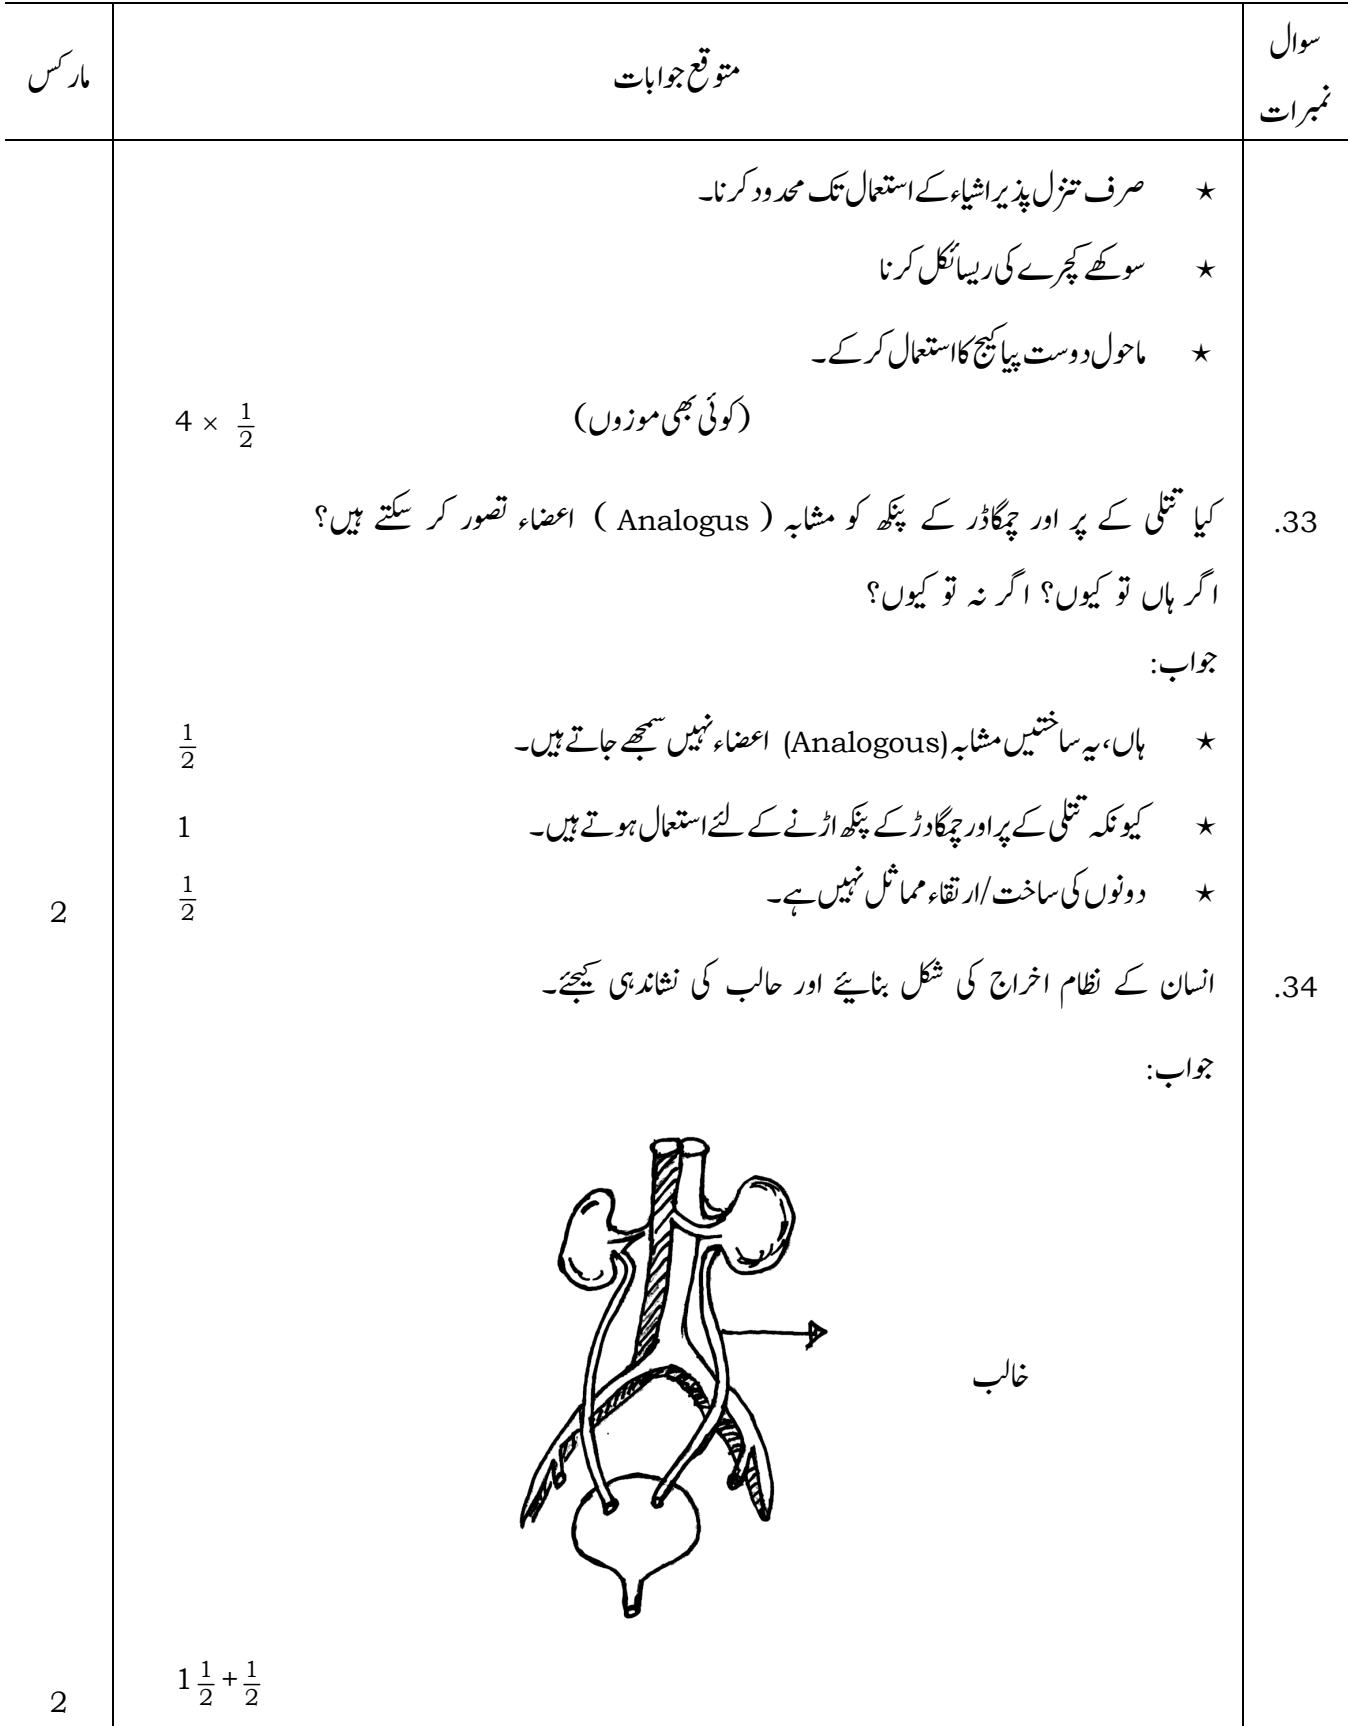 سوال نمبرات	متوقع جوابات	مارکس
★ صرف تنزل پذیر اشیاء کے استعمال تک محدود کرنا۔
★ سوکھے کچرے کی ریسائکل کرنا
★ ماحول دوست پیاکیج کا استعمال کر کے۔
(کوئی بھی موزوں) 4 × 1/2
33. کیا تتلی کے پر اور چمگاڈر کے پنکھ کو مشابہ ( Analogus ) اعضاء تصور کر سکتے ہیں؟
اگر ہاں تو کیوں؟ اگر نہ تو کیوں؟
جواب:
★ ہاں، یہ ساختیں مشابہ (Analogous) اعضاء نہیں سمجھے جاتے ہیں۔ 1/2
★ کیونکہ تتلی کے پر اور چمگادڑ کے پنکھ اڑنے کے لئے استعمال ہوتے ہیں۔ 1
★ دونوں کی ساخت/ارتقاء مماثل نہیں ہے۔ 1/2 2
34. انسان کے نظام اخراج کی شکل بنایئے اور حالب کی نشاندہی کیجئے۔
جواب:
خالب
1 1/2 + 1/2 2